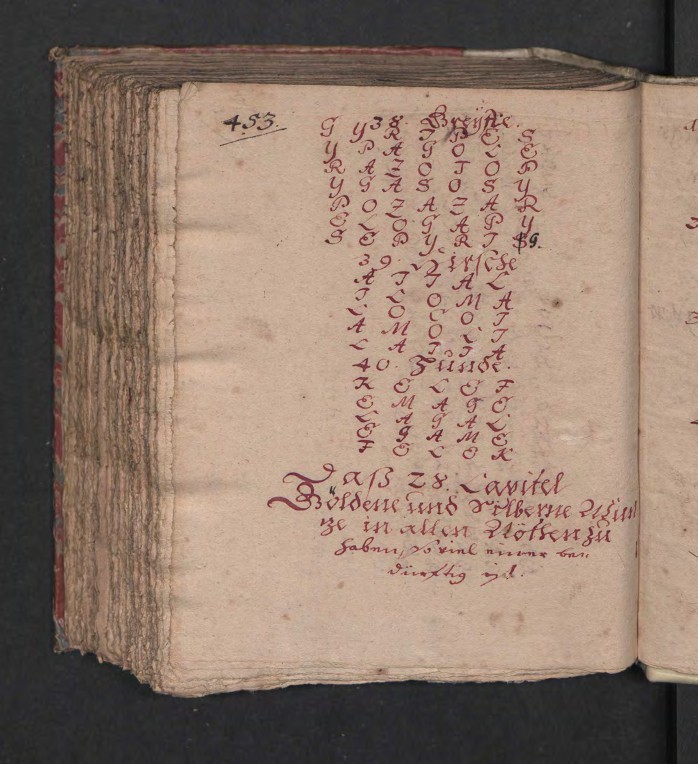 453.
38. Greyffe.
G Y R I P E S
Y P A G O L E
R A Z O T O P
Y G A S O S Y
P O Z A Z A R
E L O G A P Y
S E P Y R I G.
39. Hirsche
A I I A L
I L O M A
L O C O I
A M O L I
L A I I A
40. Hunde.
K E L E F
E M A G E
L A G A L
E G A M E
F E L E K
Daß 28. Capitel
Göldene und Silberne Mün
ze in allen Nöthen zu
haben, so viel einer be=
dürftig ist.